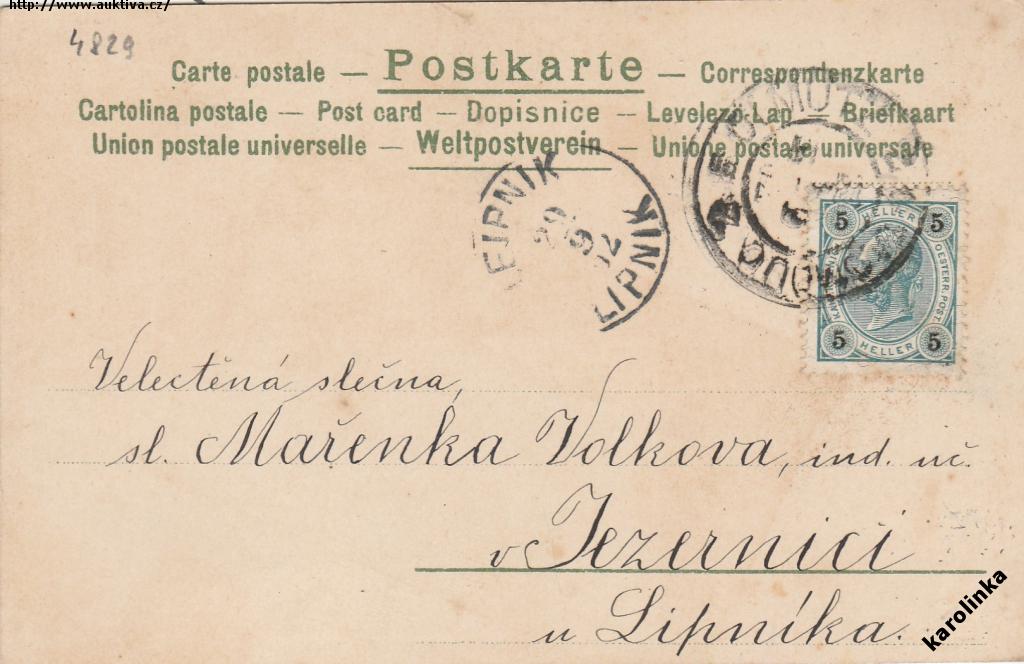 http://www.auktiva.cz/
4829
Carte postale — Postkarte — Correspondenzkarte
Cartolina postale — Post card — Dopisnice — Levelező-Lap — Briefkaart
Union postale universelle — Weltpostverein — Unione postale universale
LEIPNIK
LIPNIK
OLMÜTZ
5 HELLER 5
OESTERR. POST.
5 HELLER 5
Velectěná slečna,
sl. Mařenka Volkova, ind. uč.
v Jezernici
u Lipníka.
karolinka